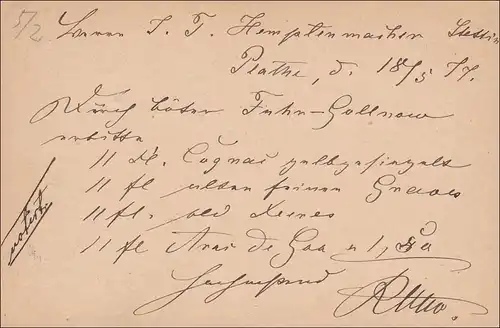 5/2
Herrn J. T. Hemptenmacher Stettin
Plathe, d. 18/5 77.
Durch Boten Fuhr-Gollnow
erbitte
11 fl. Cognac gelbgesiegelt
11 fl alten feinen Graves
11 fl. old Xeres
11 fl Arac de Goa a 1,50
notirt
Hochachtend